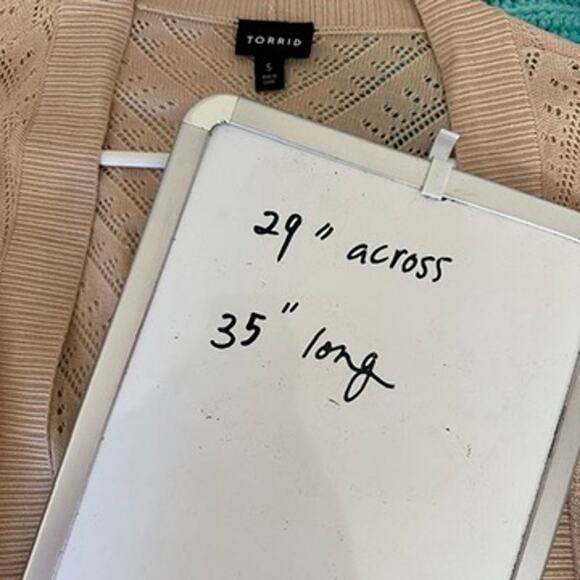 TORRID
5
29" across
35" long